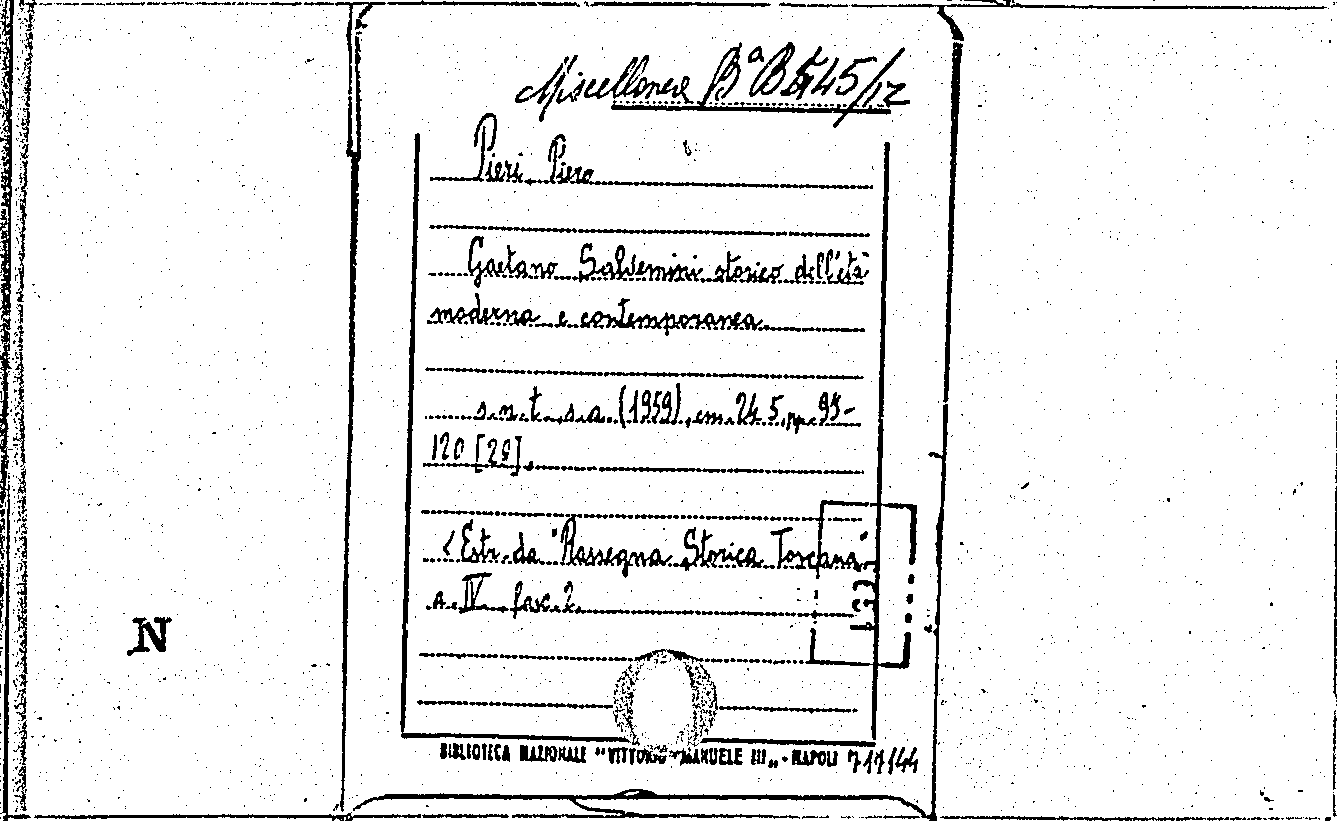 Miscellanea Bª B 545/12
Pieri Piero
Gaetano Salvemini storico dell'età
moderna e contemporanea.
s.n.t. s.a. (1959), cm. 24 5, pp. 93-
120 [28].
<Estr. da "Rassegna Storica Toscana"
a. IV fasc. 2.
N
BIBLIOTECA NAZIONALE "VITTORIO EMANUELE III„ - NAPOLI 717144